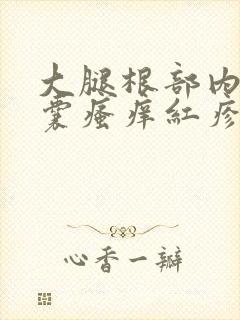 大腿根部内
囊瘙痒红疹
心香一瓣